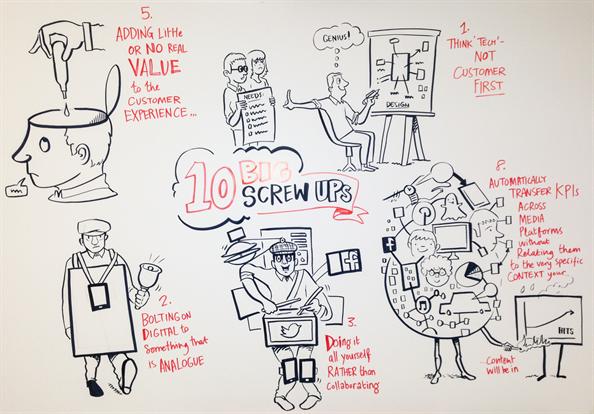 5.
ADDING LittLe
OR NO REAL
VALUE
to the
CUSTOMER
EXPERIENCE...
GENIUS!
NEEDS:
DESIGN
1.
THINK 'TECH'-
NOT
CUSTOMER
FIRST
10 BIG
SCREW UPs
8.
AUTOMATICALLY
TRANSFER KPIs
ACROSS
MEDIA
PLatforms
without
Relating them
to the very specific
CONTEXT your
HITS
...Content
will be in
2.
BOLTING ON
DIGITAL to
Something that
is ANALOGUE
f
3.
Doing it
all yourself
RATHER than
collaborating